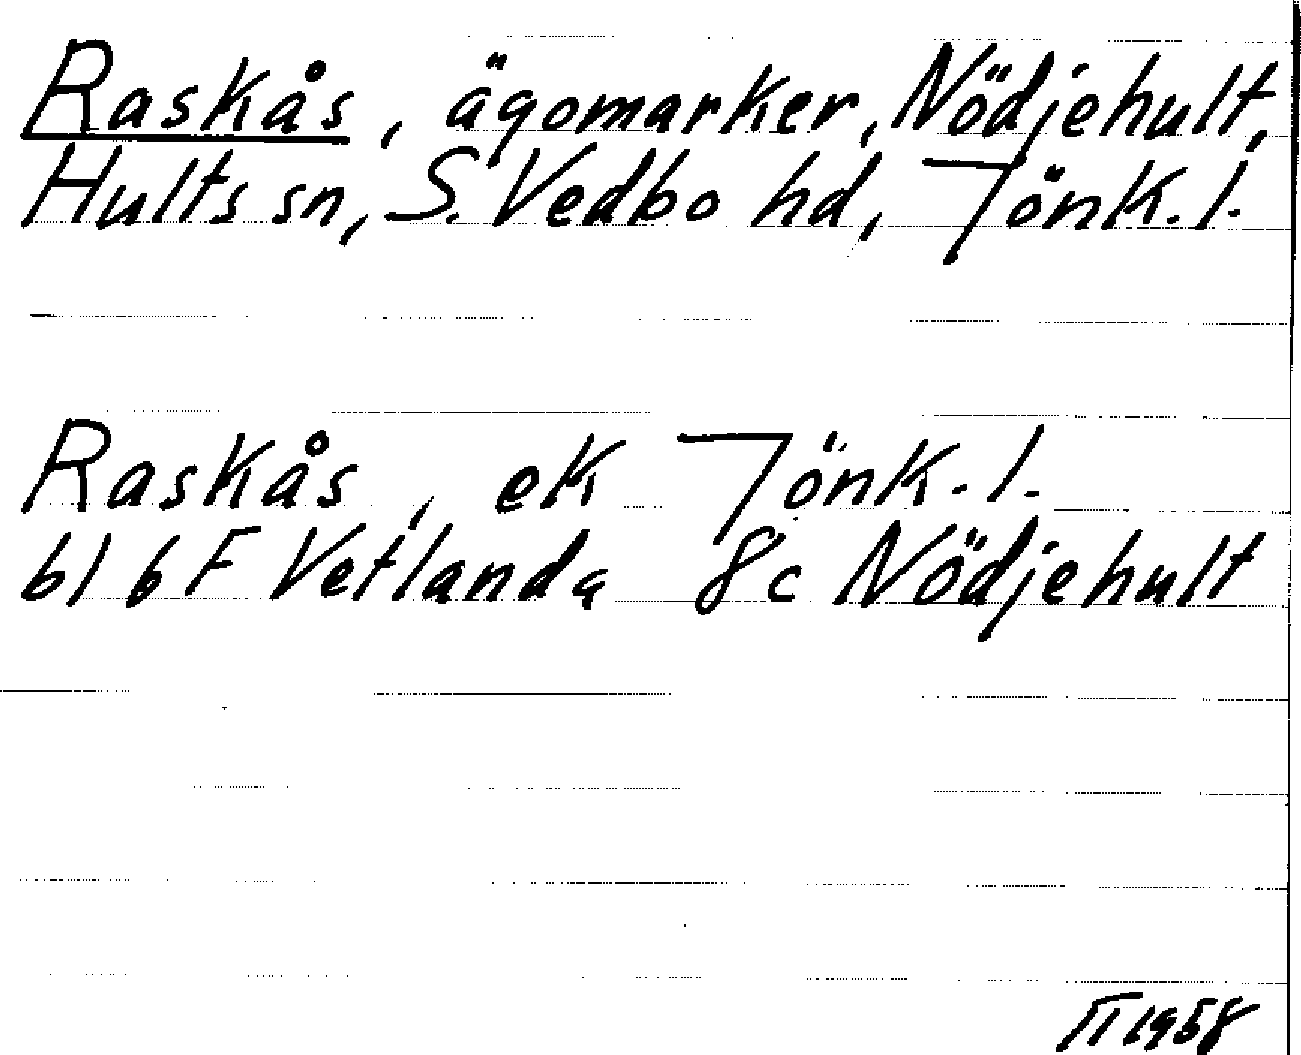 Raskås, ägomarker, Nödjehult,
Hults sn, S. Vedbo hd, Jönk. l.
Raskås, ek Jönk. l.
bl 6 F Vetlanda 8c Nödjehult
1958